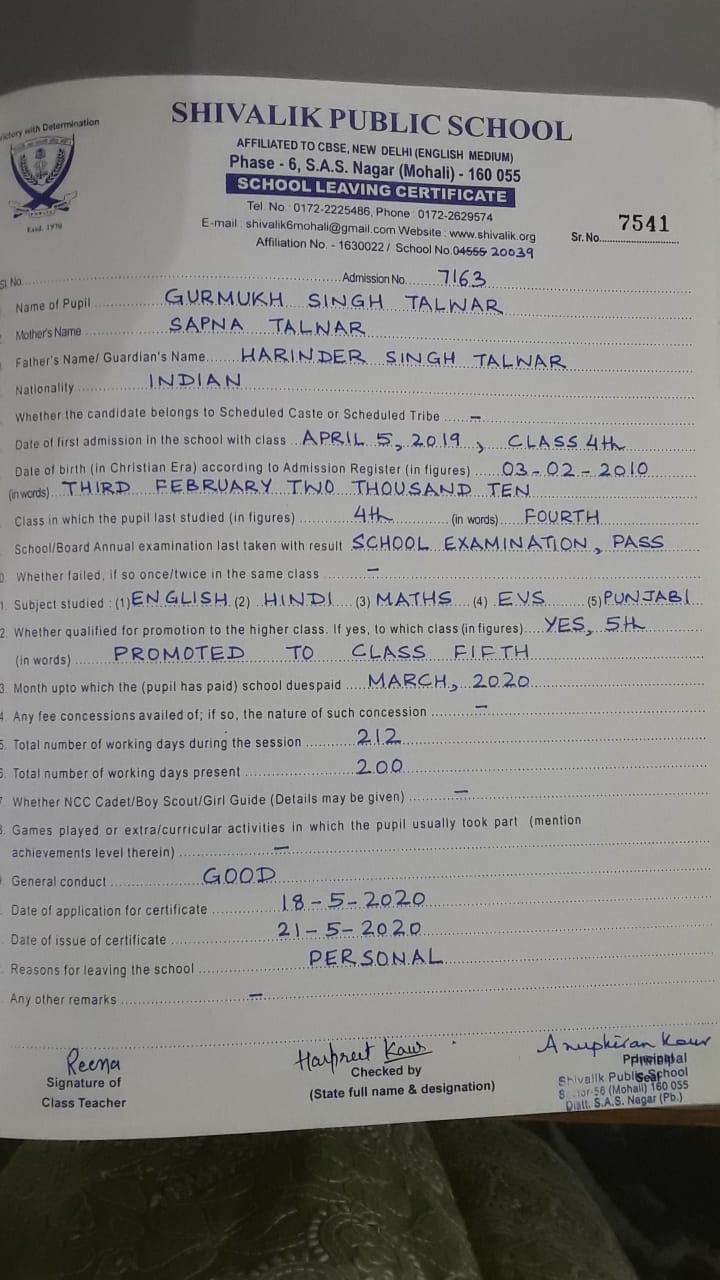 Victory with Determination
Estd. 1970
SHIVALIK PUBLIC SCHOOL
AFFILIATED TO CBSE, NEW DELHI (ENGLISH MEDIUM)
Phase - 6, S.A.S. Nagar (Mohali) - 160 055
SCHOOL LEAVING CERTIFICATE
Tel. No.: 0172-2225486, Phone : 0172-2629574
E-mail : shivalik6mohali@gmail.com Website : www.shivalik.org
Sr. No. 7541
Affiliation No. - 1630022 / School No. 04555 20039
Sl. No. Admission No. 7163
Name of Pupil GURMUKH SINGH TALWAR
Mother's Name SAPNA TALWAR
Father's Name/ Guardian's Name HARINDER SINGH TALWAR
Nationality INDIAN
Whether the candidate belongs to Scheduled Caste or Scheduled Tribe –
Date of first admission in the school with class APRIL 5, 2019, CLASS 4th
Date of birth (in Christian Era) according to Admission Register (in figures) 03-02-2010
(in words) THIRD FEBRUARY TWO THOUSAND TEN
Class in which the pupil last studied (in figures) 4th (in words) FOURTH
School/Board Annual examination last taken with result SCHOOL EXAMINATION, PASS
0. Whether failed, if so once/twice in the same class –
1. Subject studied : (1) ENGLISH (2) HINDI (3) MATHS (4) EVS (5) PUNJABI
2. Whether qualified for promotion to the higher class. If yes, to which class (in figures) YES, 5th
(in words) PROMOTED TO CLASS FIFTH
3. Month upto which the (pupil has paid) school duespaid MARCH, 2020
4. Any fee concessions availed of; if so, the nature of such concession –
5. Total number of working days during the session 212
6. Total number of working days present 200
7. Whether NCC Cadet/Boy Scout/Girl Guide (Details may be given) –
8. Games played or extra/curricular activities in which the pupil usually took part (mention
achievements level therein) –
General conduct GOOD
Date of application for certificate 18-5-2020
Date of issue of certificate 21-5-2020
Reasons for leaving the school PERSONAL
Any other remarks –
Reena
Signature of
Class Teacher
Harpreet Kaur
Checked by
(State full name & designation)
Anupkiran Kaur
Principal
Seal
Shivalik Public School
(Mohali) 160 055
Distt. S.A.S. Nagar (Pb.)